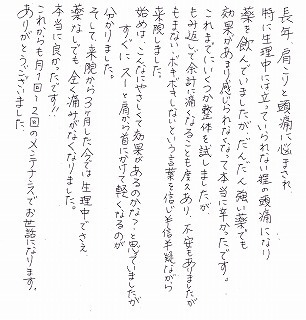 長年、肩こりと頭痛に悩まされ
特に生理中には立っていられない程の頭痛になり
薬を飲んでいましたが、だんだん強い薬でも
効果があまり感じられなくなって本当に辛かったです。
これまでにいくつか整体を試しましたが
もみ返しで余計に痛くなることも度々あり、不安もありましたが
もまない・ボキボキしないという言葉を信じ半信半疑ながら
来院しました。
始めは、こんなにやさしくて効果があるのかな?と思っていましたが
すぐにスーッと肩から首にかけて軽くなるのが
分かりました。
そして来院から3ヶ月した今では生理中でさえ
薬なしでも全く痛みがなくなりました。
本当に良かったです!!
これからも月1回〜2回のメンテナンスでお世話になります。
ありがとうございました。